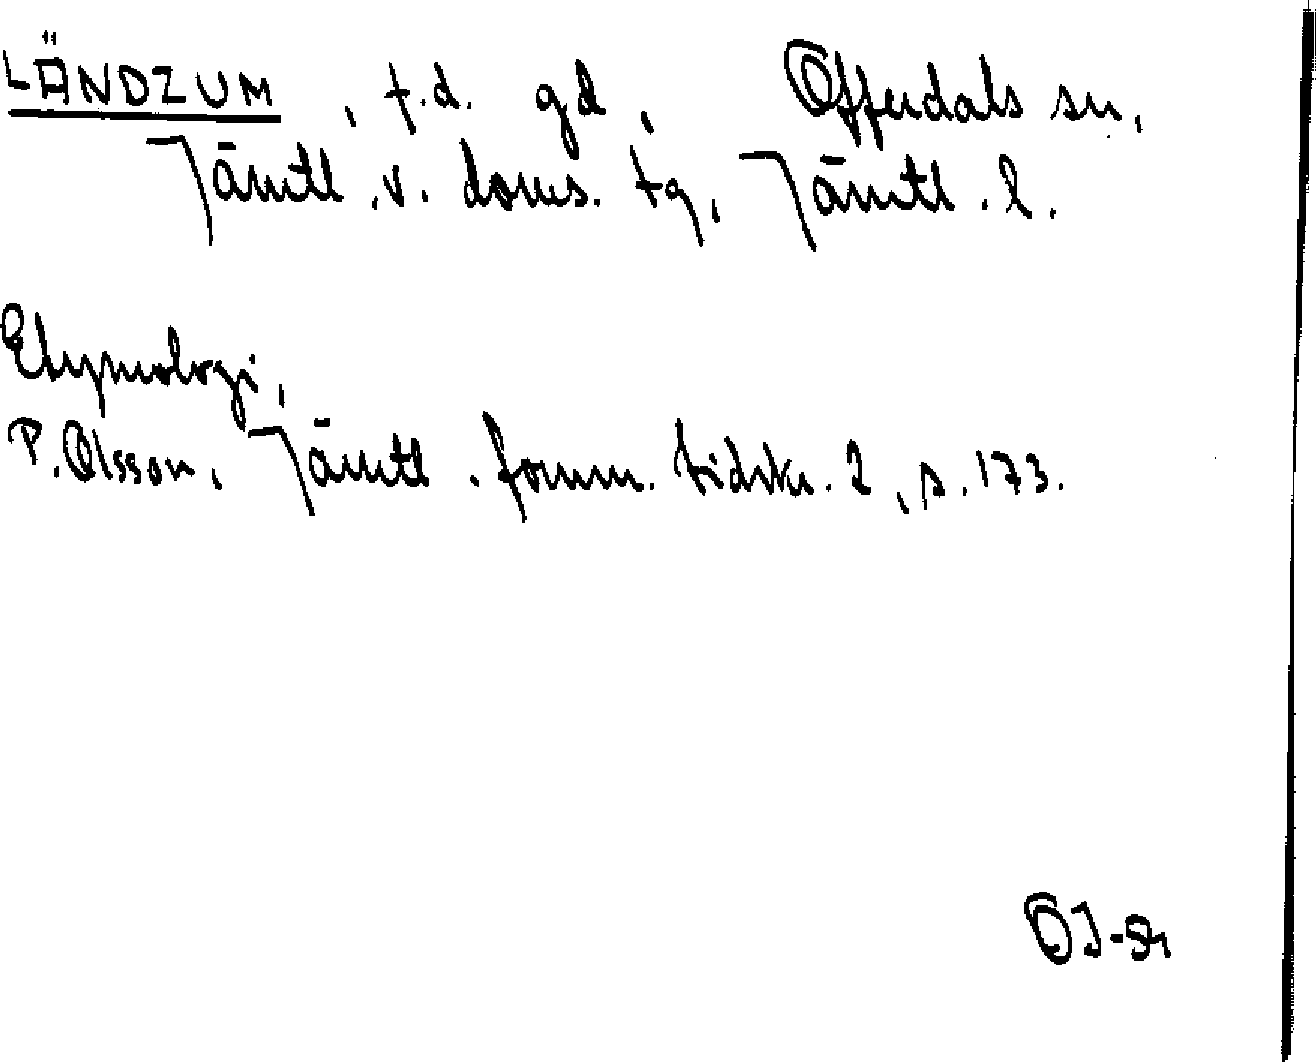 LÄNDZUM, f.d. gd, Offerdals sn,
Jämtl.v. doms. tg, Jämtl. l.
Etymologi,
P. Olsson, Jämtl. fornm. tidskr. 2, s. 173.